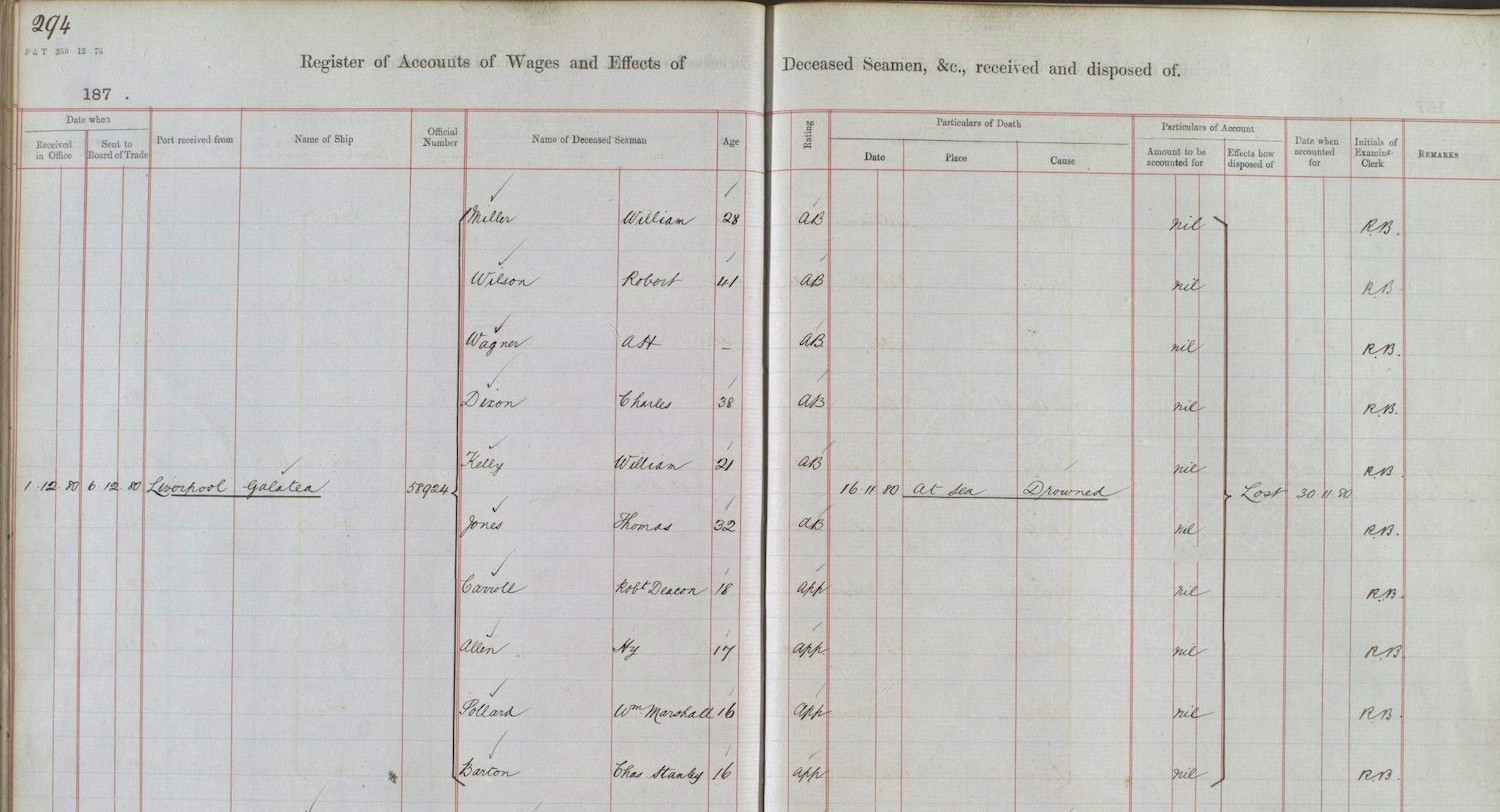 294
F & T 350 12 75
Register of Accounts of Wages and Effects of Deceased Seamen, &c., received and disposed of.
187 .
Date when
Received in Office
Sent to Board of Trade
Port received from
Name of Ship
Official Number
Name of Deceased Seaman
Age
Rating
Particulars of Death
Date
Place
Cause
Particulars of Account
Amount to be accounted for
Effects how disposed of
Date when accounted for
Initials of Examing. Clerk
REMARKS
Miller William 28 AB nil R.B.
Wilson Robert 41 AB nil R.B.
Wagner AH – AB nil R.B.
Dixon Charles 38 AB nil R.B.
Kelly William 21 AB nil R.B.
1 12 80 6 12 80 Liverpool Galatea 58924 16 11 80 At Sea Drowned Lost 30 11 80
Jones Thomas 32 AB nil R.B.
Carroll Robt Deacon 18 app nil R.B.
Allen Hy 17 app nil R.B.
Pollard Wm Marshall 16 app nil R.B.
Barton Chas Stanley 16 app nil R.B.